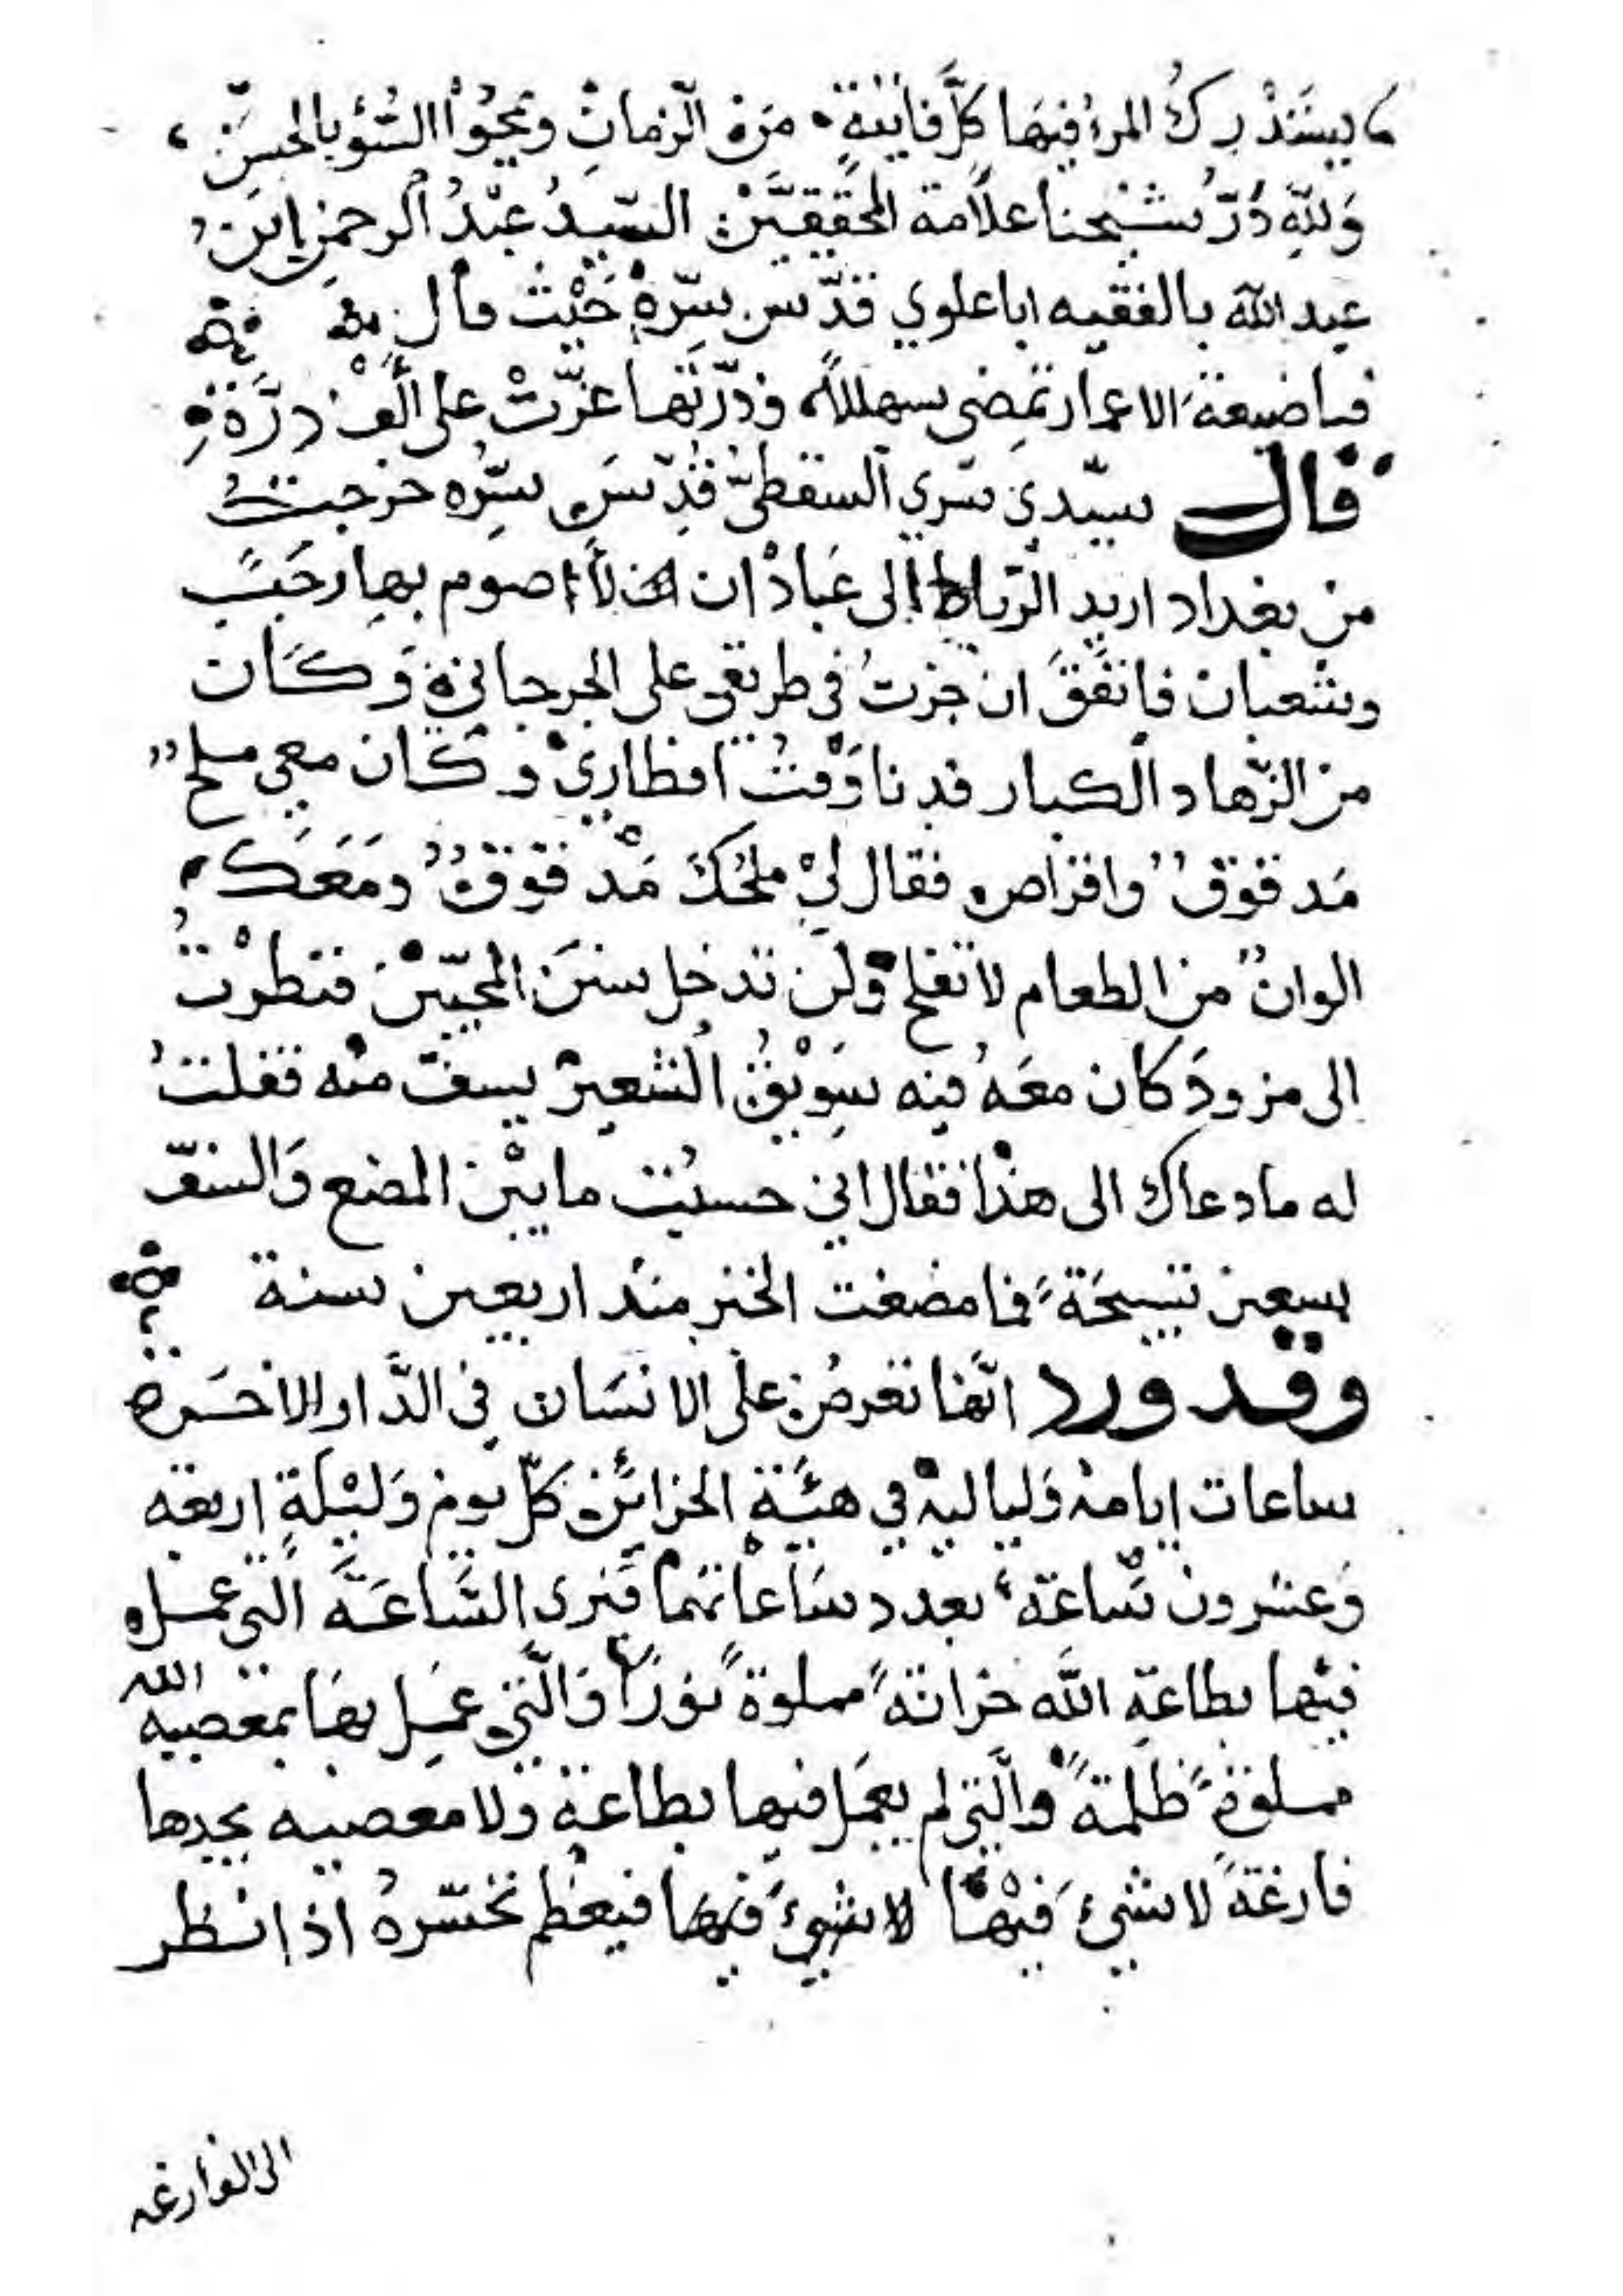 يستدرك المرء فيها كلَّ فائتةٍ من الزمانِ ويمحوا السُّوء بالحسنِ
وَلِلّهِ دَرُّ شيخنا علّامة المحققين السّيدُ عبْدُ الرحمن ابن
عبد الله بالفقيه اباعلوي قدّس سِرّهُ حَيْث قال
فيا ضيعةَ الاعمار تمضي سبهللاً وذرّتها عزّتْ على ألْف درّة
قال سيّدي سَري السقطيّ قُدِّسَ سِرّه خرجتُ
من بغداد اريد الرّباط إلى عَبادْان لأ اصوم بها رجَبَ
وشعبان فاتفَقَ ان جزتُ في طريقي على الجرجاني وَكَان
من الزّهاد الكبار فدنا وَقتُ افطاريْ وكان معي ملح
مَدقوقٌ واقراص فقال ليْ ملحُكَ مَدْقوقٌ ومَعَكَ
الوانٌ من الطعام لا تفلح ولن تدخل سننَ المحبّيْنَ فنظرْتُ
الى مزودَ كان معَهُ فيه سَوِيْقُ الشعير يسف منه فقلتُ
له ما دعاك الى هذا فقال اني حسبْت ما بيْن المضغ وَالسفّ
سبعين تسبيحَةً فما مضغت الخبز منذ اربعين سنة
وقد ورد انّها تعرضُ على الانسَان في الدَّار الاخسَره
ساعات ايامه وَلياليه في هيْئَةِ الخزائن كلّ يوم وَليْلَةٍ اربعة
وَعشرون سَّاعة بعدد سَاعاتهما فَيرى السَّاعَةَ الّتي عمل
فيْها بطاعةِ اللَّه خزانةً مملوةً نوْرًا وَالَّتي عمِل بهَا بمعصيه الله
مملوةً ظلمةً والَّتي لم يعمَل فيها بطاعة ولا معصيه يجدها
فارغةً لا شيْءَ فيْهَا لا شيْءَ فيهَا فيعظم تحسّرهُ اذا نظر
الى الفارغه